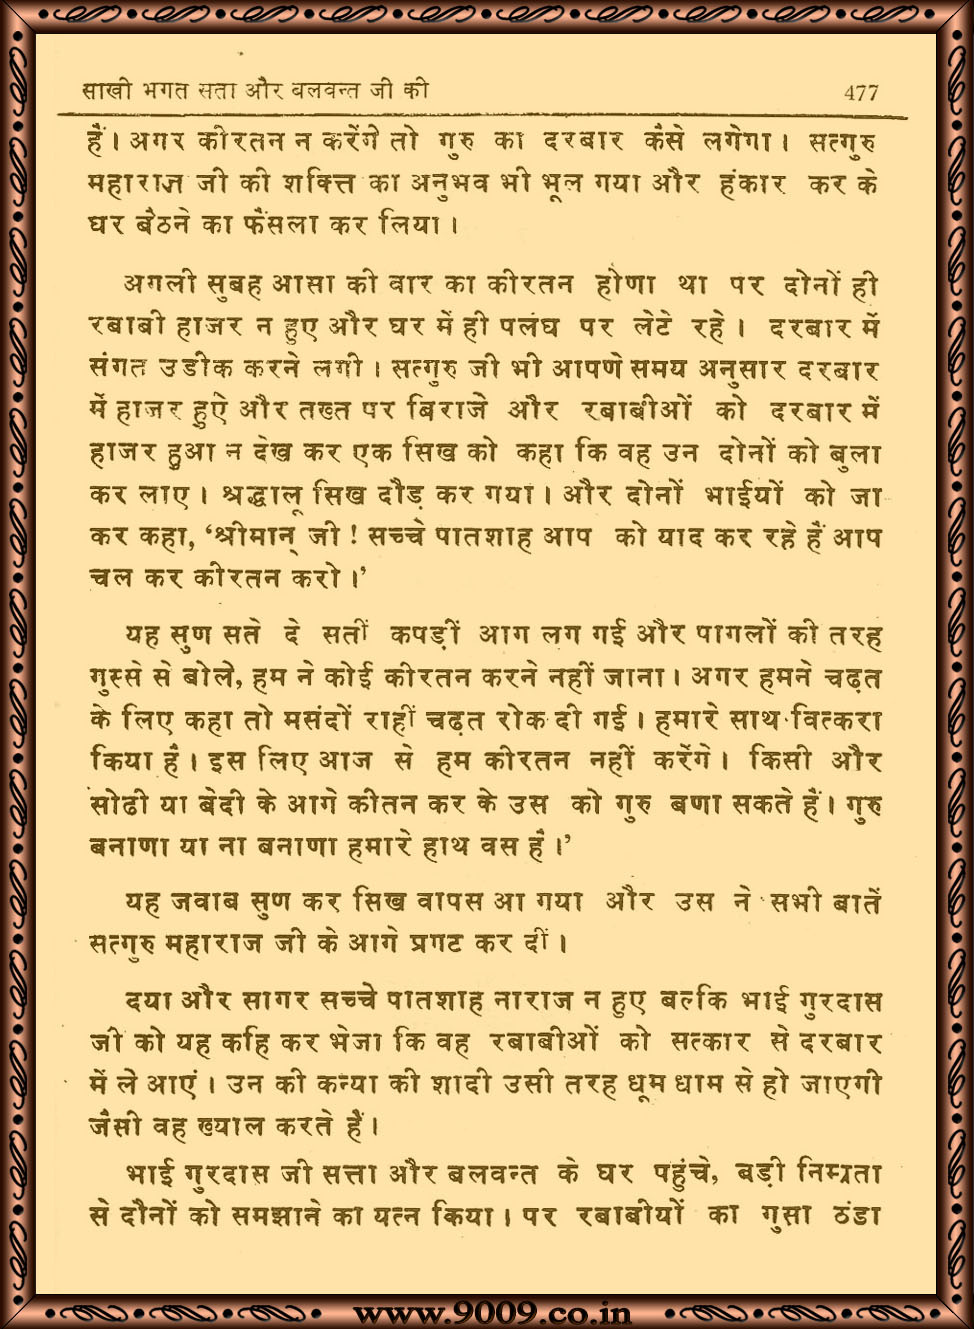 साखी भगत सता और बलवन्त जी की 477
हैं। अगर कीरतन न करेंगे तो गुरु का दरबार कैसे लगेगा। सत्गुरु
महाराज जी की शक्ति का अनुभव भी भूल गया और हंकार कर के
घर बैठने का फैंसला कर लिया।
अगली सुबह आसा की वार का कीरतन होणा था पर दोनों ही
रबाबी हाजर न हुए और घर में ही पलंघ पर लेटे रहे। दरबार में
संगत उडीक करने लगी। सत्गुरु जी भी आपणे समय अनुसार दरबार
में हाजर हुऐ और तख्त पर बिराजे और रबाबीओं को दरबार में
हाजर हुआ न देख कर एक सिख को कहा कि वह उन दोनों को बुला
कर लाए। श्रद्धालू सिख दौड़ कर गया। और दोनों भाईयों को जा
कर कहा, ‘श्रीमान् जी ! सच्चे पातशाह आप को याद कर रहे हैं आप
चल कर कीरतन करो।’
यह सुण सते दे सतीं कपड़ीं आग लग गई और पागलों की तरह
गुस्से से बोले, हम ने कोई कीरतन करने नहीं जाना। अगर हमने चढ़त
के लिए कहा तो मसंदों राहीं चढ़त रोक दी गई। हमारे साथ वित्करा
किया है। इस लिए आज से हम कीरतन नहीं करेंगे। किसी और
सोढी या बेदी के आगे कीतन कर के उस को गुरु बणा सकते हैं। गुरु
बनाणा या ना बनाणा हमारे हाथ वस है।’
यह जवाब सुण कर सिख वापस आ गया और उस ने सभी बातें
सत्गुरु महाराज जी के आगे प्रगट कर दीं।
दया और सागर सच्चे पातशाह नाराज न हुए बल्कि भाई गुरदास
जी को यह कहि कर भेजा कि वह रबाबीओं को सत्कार से दरबार
में ले आएं। उन की कन्या की शादी उसी तरह धूम धाम से हो जाएगी
जैसी वह ख्याल करते हैं।
भाई गुरदास जी सत्ता और बलवन्त के घर पहुंचे, बड़ी निम्रता
से दौनों को समझाने का यत्न किया। पर रबाबीयों का गुसा ठंडा
www.9009.co.in